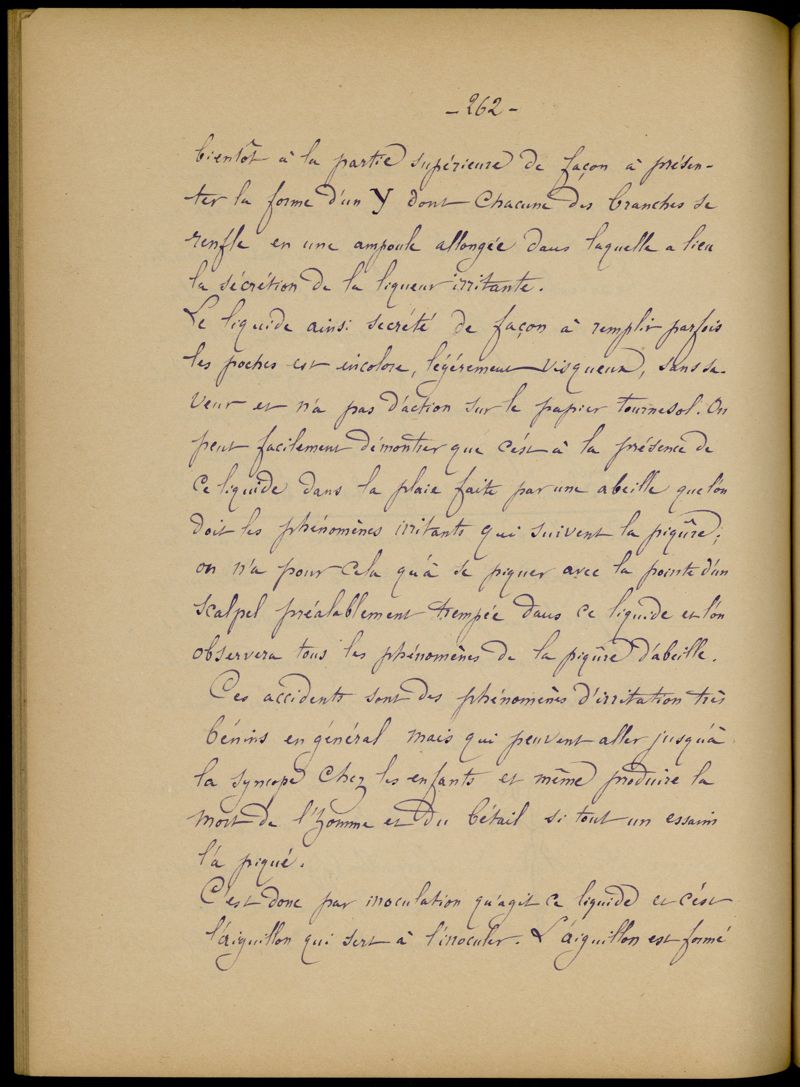 - 262 -
bientôt à la partie supérieure de façon à présen-
ter la forme d'un Y dont chacune des branches se
renfle en une ampoule allongée dans laquelle a lieu
la sécrétion de la liqueur irritante.
Le liquide ainsi secrété de façon à remplir parfois
les poches est incolore, légérement visqueux, sans sa-
veur et n'a pas d'action sur le papier tournesol. On
peut facilement démontrer que c'est à la présence de
ce liquide dans la plaie faite par une abeille que l'on
doit les phénomènes irritants qui suivent la piqûre;
on n'a pour cela qu'à se piquer avec la pointe d'un
scalpel préalablement trempée dans ce liquide et l'on
observera tous les phénomènes de la piqûre d'abeille.
Ces accidents sont des phénomènes d'irritation très
bénins en général mais qui peuvent aller jusqu'à
la syncope chez les enfants et même produire la
mort de l'homme et du bétail si tout un essaim
l'a piqué.
C'est donc par inoculation qu'agit ce liquide et c'est
l'aiguillon qui sert à l'inoculer. L'aiguillon est formé